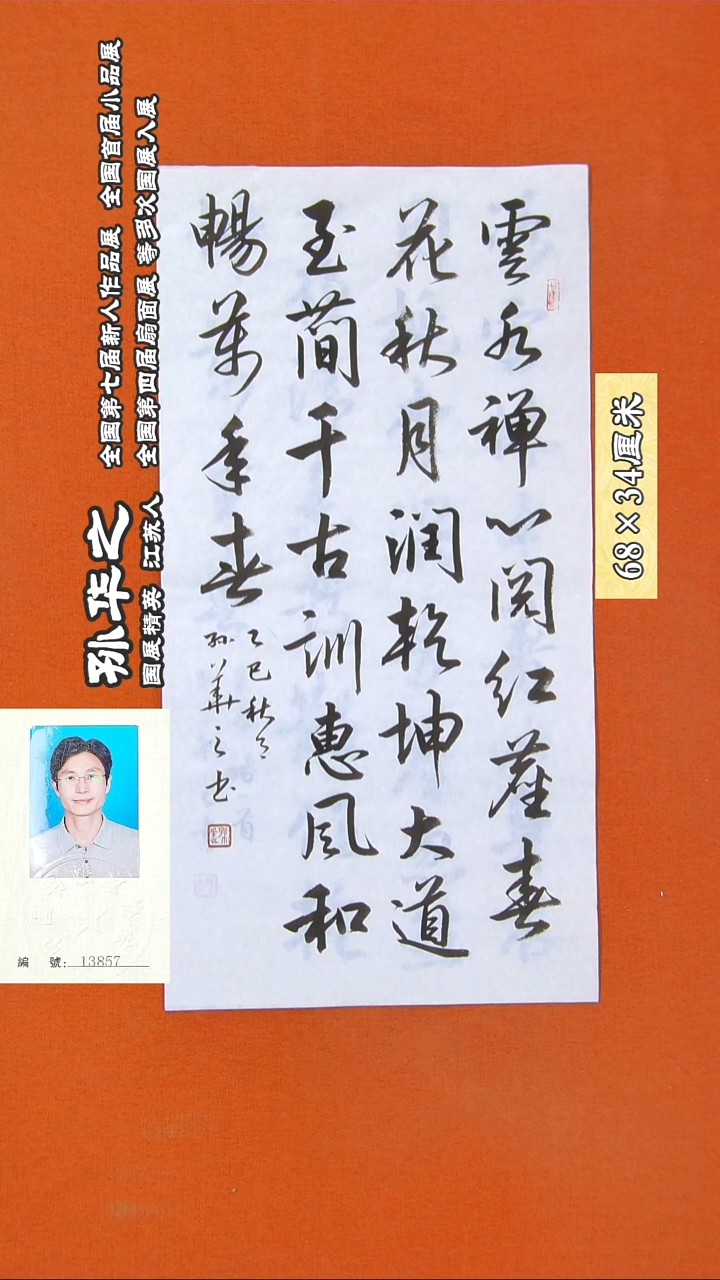 雲水禅心閱紅塵春
花秋月润乾坤大道
至簡千古訓惠风和
暢萬年春
乙巳秋月
孙華之书
孙华之
国展精英 江苏人
全国第七届新人作品展 全国首届小品展
全国第四届扇面展 等多次国展入展
68×34厘米
編 號: 13857